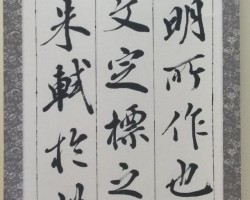 明所作也
文定標之
朱軾於